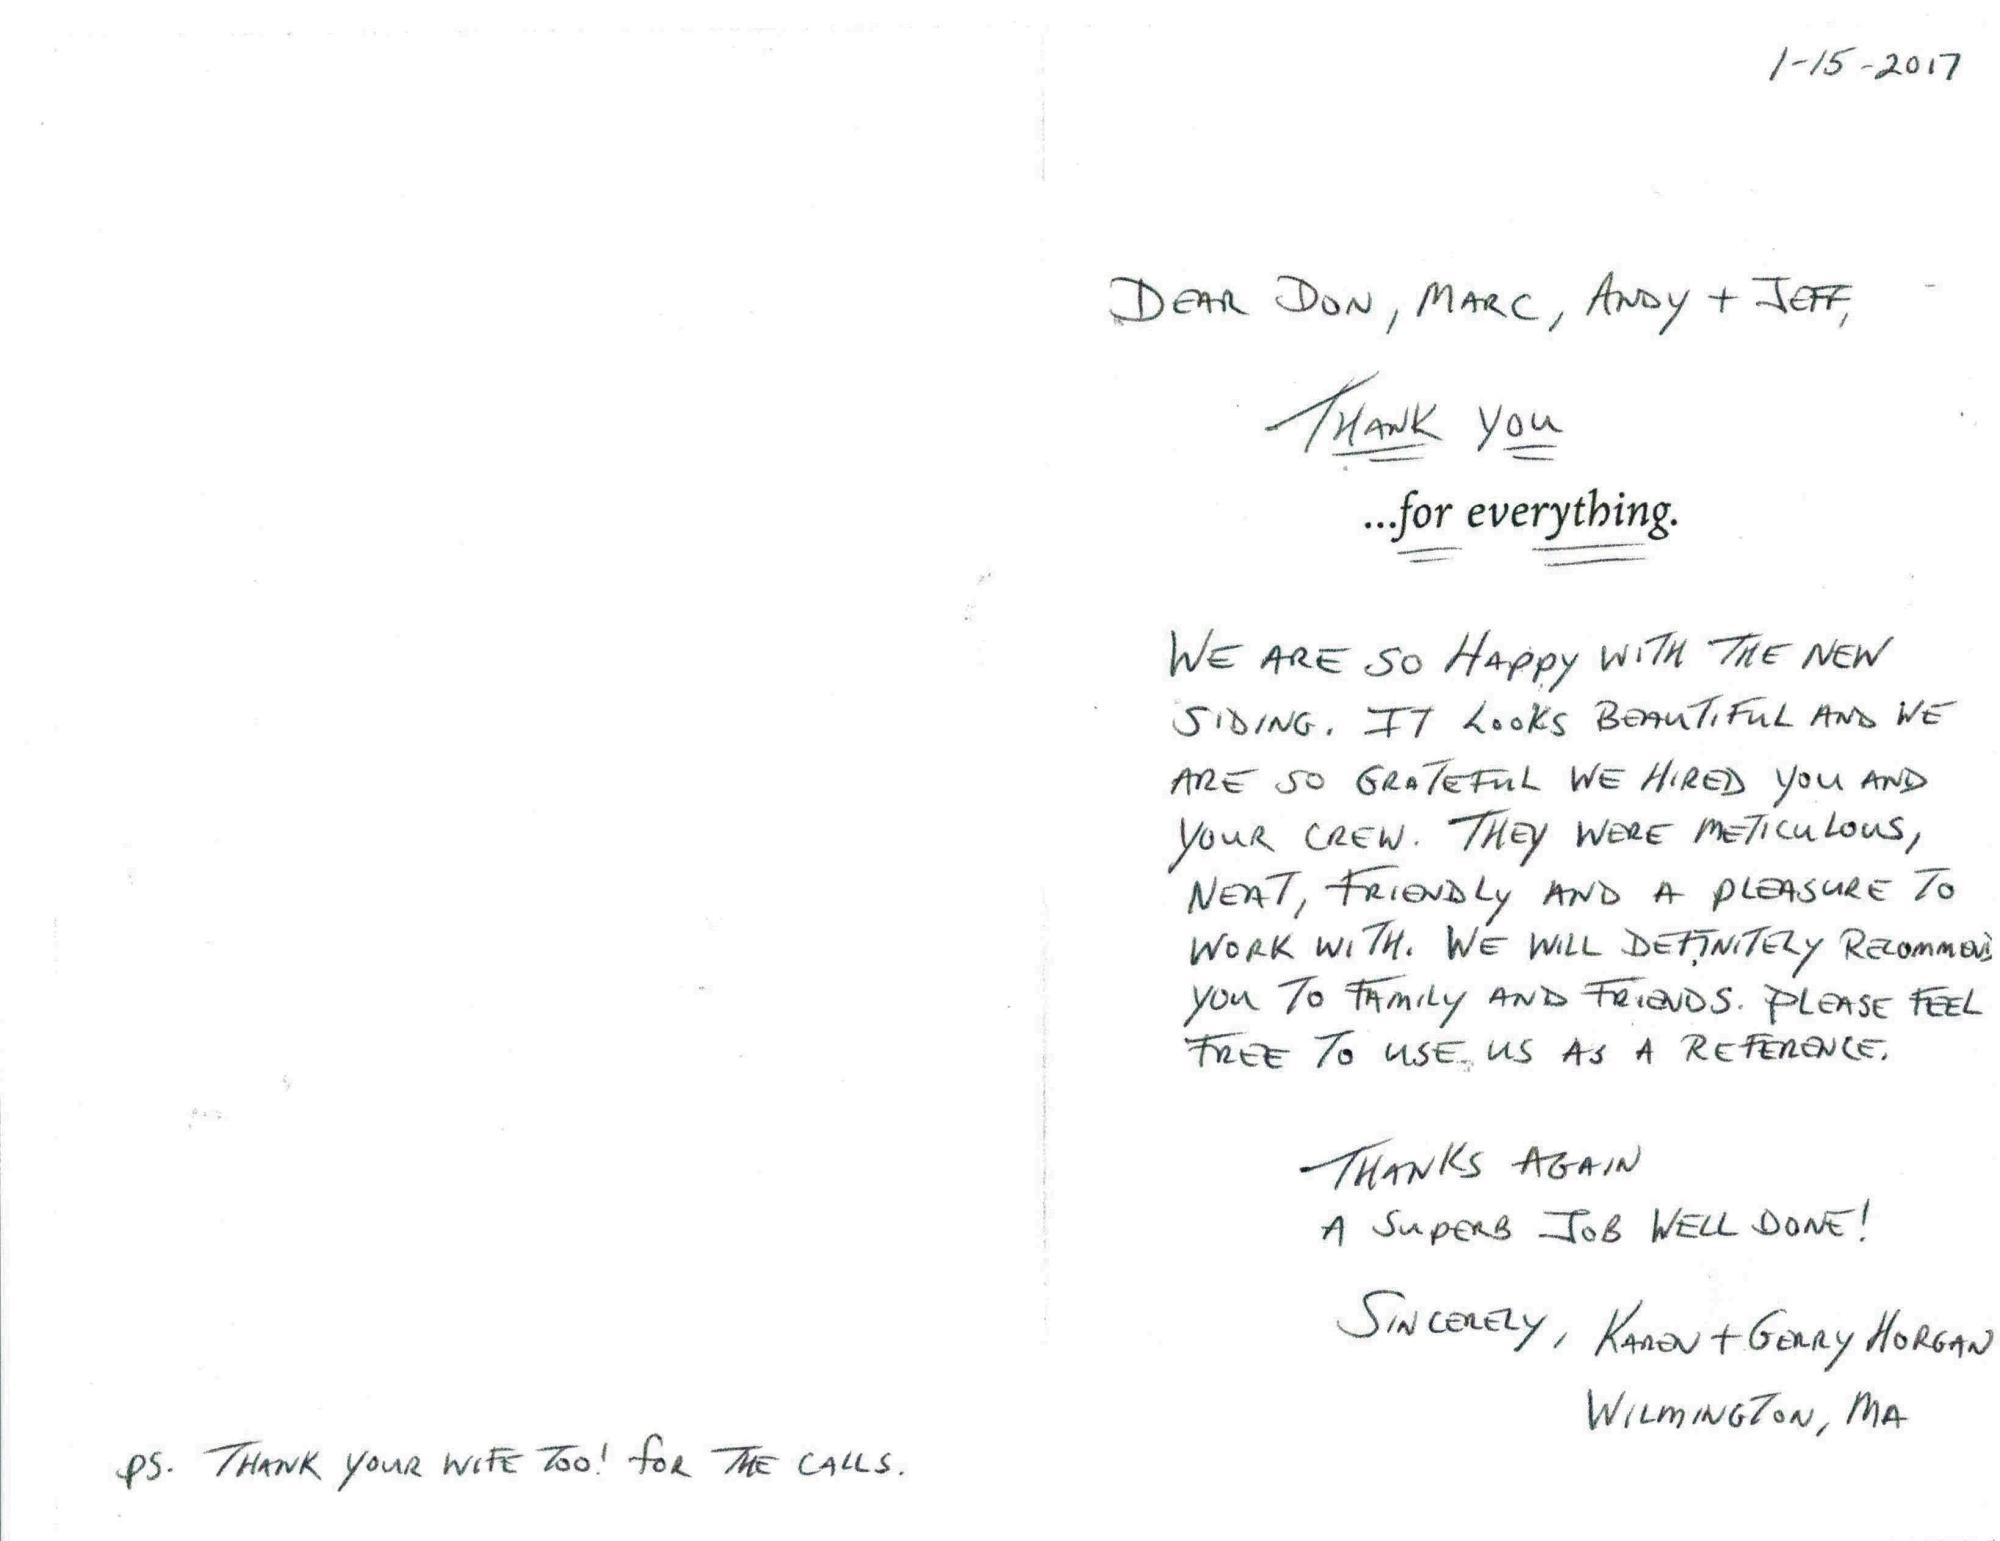 1-15-2017
DEAR DON, MARC, ANDY + JEFF,
THANK YOU
...for everything.
WE ARE SO HAPPY WITH THE NEW
SIDING. IT LOOKS BEAUTIFUL AND WE
ARE SO GRATEFUL WE HIRED YOU AND
YOUR CREW. THEY WERE METICULOUS,
NEAT, FRIENDLY AND A PLEASURE TO
WORK WITH. WE WILL DEFINITELY RECOMMEND
YOU TO FAMILY AND FRIENDS. PLEASE FEEL
FREE TO USE US AS A REFERENCE.
THANKS AGAIN
A SUPERB JOB WELL DONE!
SINCERELY, KAREN + GERRY HORGAN
WILMINGTON, MA
PS. THANK YOUR WIFE TOO! for THE CALLS.